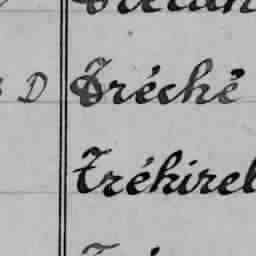 D Tréché
Tréhirel